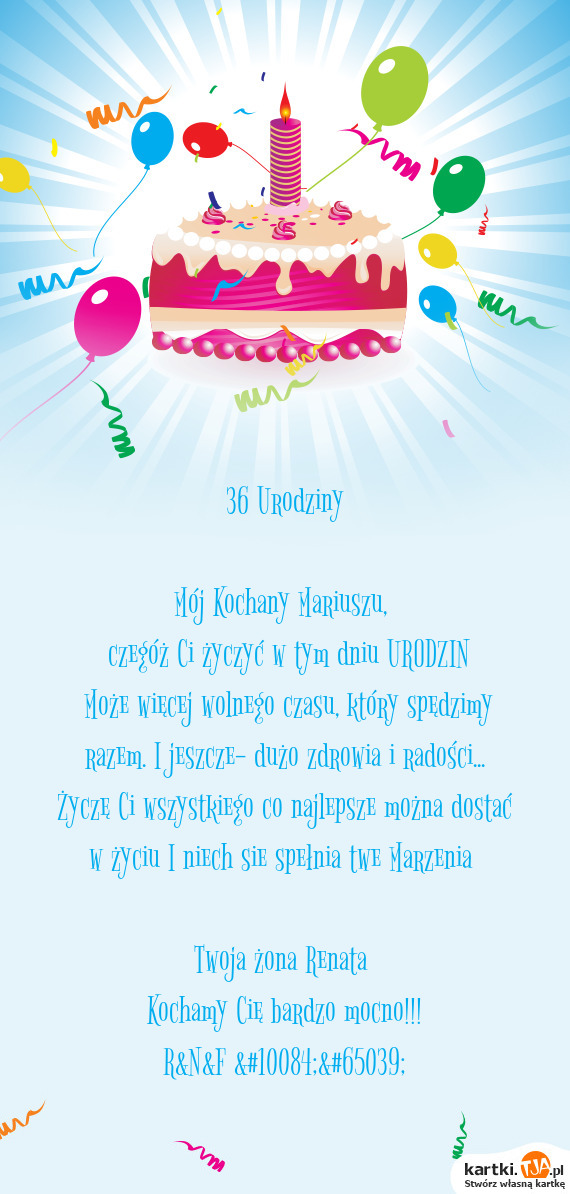 36 Urodziny
Mój Kochany Mariuszu,
czegóż Ci życzyć w tym dniu URODZIN
Może więcej wolnego czasu, który spędzimy
razem. I jeszcze- dużo zdrowia i radości...
Życzę Ci wszystkiego co najlepsze można dostać
w życiu I niech sie spełnia twe Marzenia
Twoja żona Renata
Kochamy Cię bardzo mocno!!!
R&N&F &#10084;&#65039;
kartki.TJA.pl
Stwórz własną kartkę